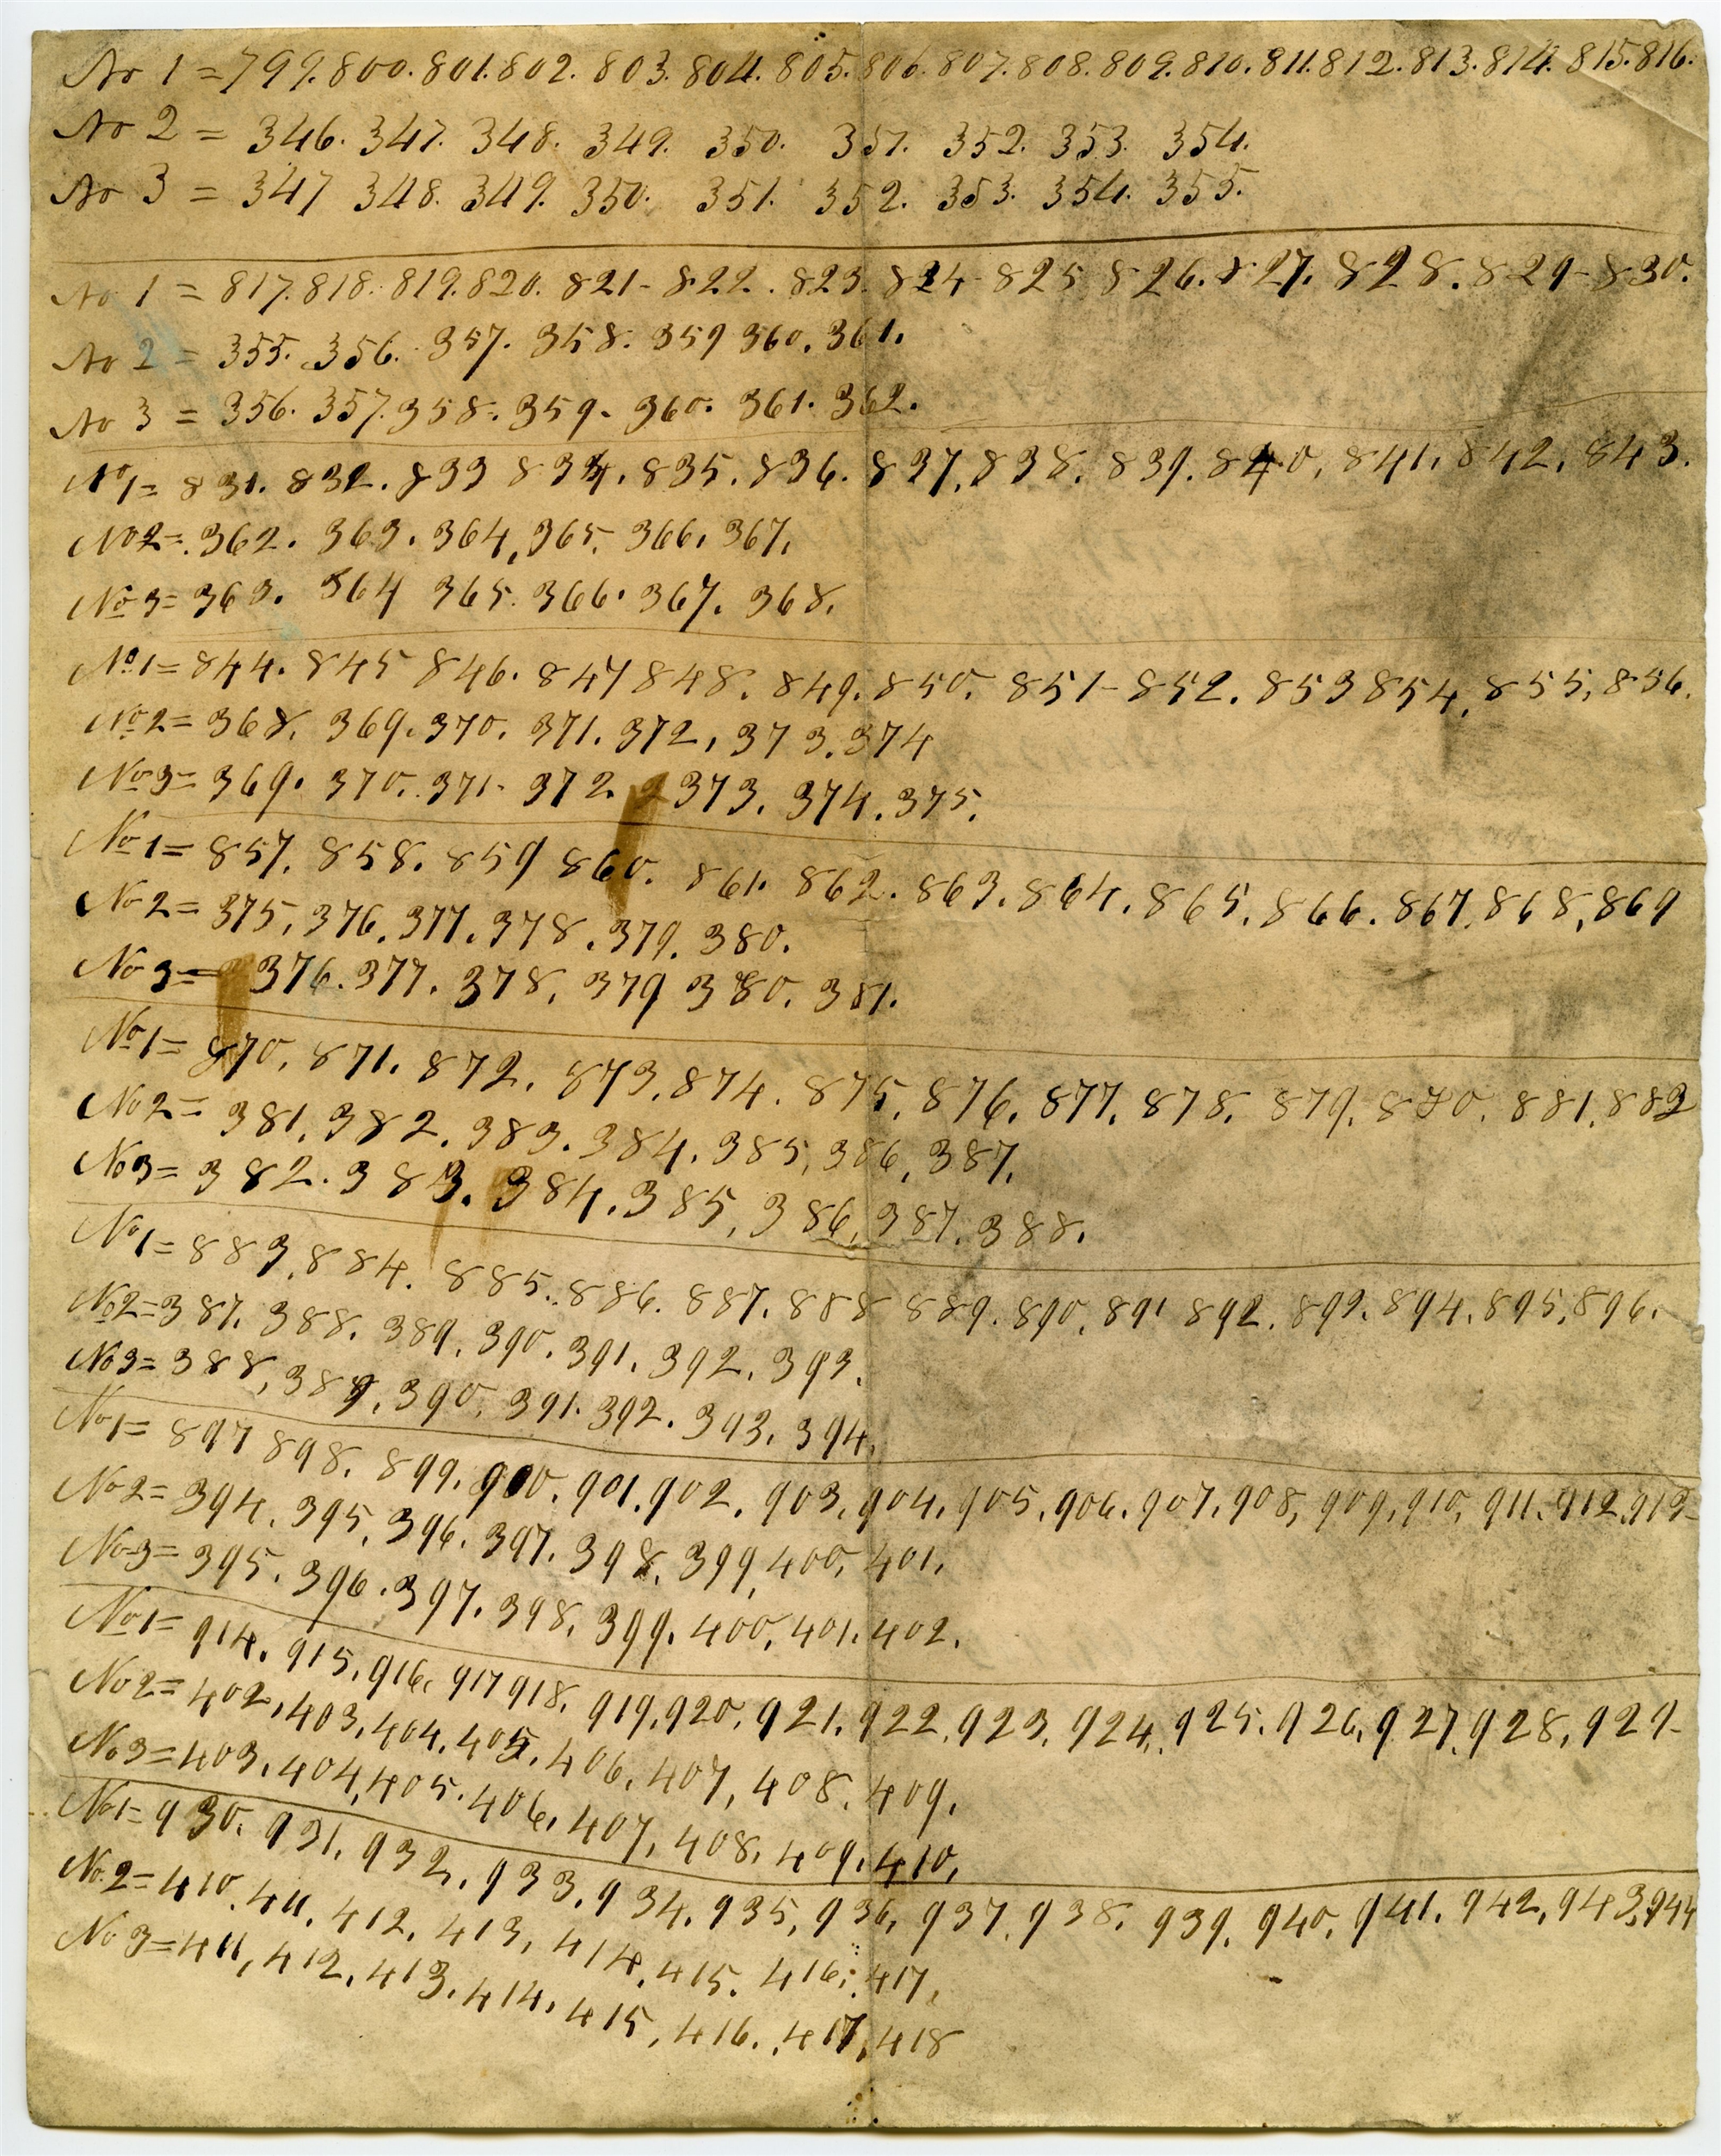 No 1 = 799. 800. 801. 802. 803. 804. 805. 806. 807. 808. 809. 810. 811. 812. 813. 814. 815. 816.
No 2 = 346. 347. 348. 349. 350. 351. 352. 353. 354.
No 3 = 347 348. 349. 350. 351. 352. 353. 354. 355.
No 1 = 817. 818. 819. 820. 821- 822. 823. 824- 825 826. 827. 828. 829- 830.
No 2 = 355. 356. 357. 358. 359 360. 361.
No 3 = 356. 357. 358. 359- 360. 361. 362.
No 1 = 831. 832. 833 834. 835. 836. 837. 838. 839. 840, 841, 842, 843.
No 2 = 362. 363. 364, 365. 366, 367,
No 3 = 363. 364 365. 366. 367. 368.
No 1 = 844. 845 846. 847 848. 849. 850. 851- 852. 853 854, 855, 856.
No 2 = 368, 369. 370. 371. 372, 373. 374
No 3 = 369. 370. 371- 372. 373. 374. 375.
No 1 = 857. 858. 859 860. 861. 862. 863. 864. 865. 866. 867. 868, 869
No 2 = 375, 376. 377. 378. 379. 380.
No 3 = 376. 377. 378. 379 380. 381.
No 1 = 870, 871. 872. 873. 874. 875. 876. 877. 878. 879. 880. 881. 882
No 2 = 381, 382. 383. 384. 385, 386, 387,
No 3 = 382. 383. 384. 385, 386, 387. 388.
No 1 = 883, 884. 885. 886. 887. 888 889. 890. 891 892. 893. 894. 895, 896.
No 2 = 387. 388. 389. 390. 391. 392. 393.
No 3 = 388, 389, 390. 391. 392. 393. 394.
No 1 = 897 898. 899. 900. 901. 902. 903. 904. 905. 906. 907. 908, 909, 910, 911. 912. 913-
No 2 = 394, 395, 396. 397. 398. 399, 400, 401,
No 3 = 395. 396. 397. 398. 399. 400. 401. 402.
No 1 = 914. 915, 916. 917 918. 919. 920. 921. 922. 923. 924. 925. 926. 927. 928. 929-
No 2 = 402, 403, 404. 405, 406, 407, 408. 409.
No 3 = 403, 404, 405. 406, 407, 408, 409. 410,
No 1 = 930. 931, 932. 933. 934. 935, 936, 937. 938. 939. 940. 941. 942, 943. 944
No 2 = 410. 411, 412, 413, 414, 415. 416. 417,
No 3 = 411, 412, 413. 414. 415, 416. 417, 418